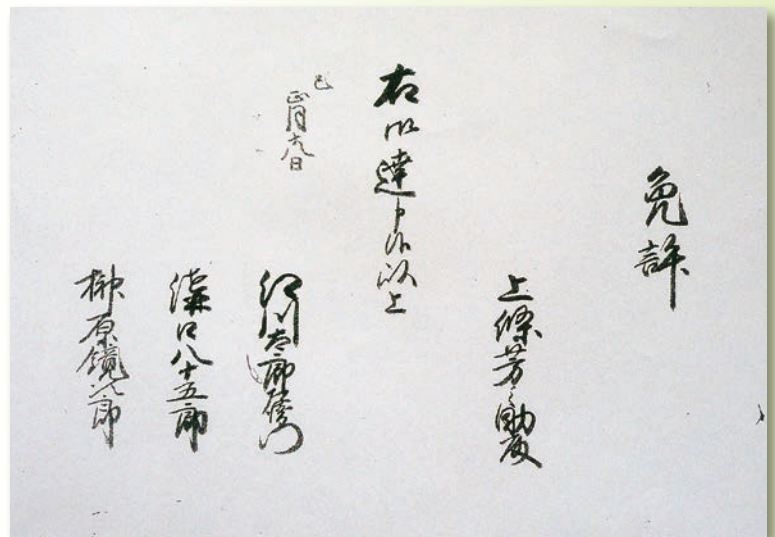 免許
上條芳之助殿
右御達申候以上
巳
正月六日
江川太郎左衛門
溝口八十五郎
榊原鏡次郎